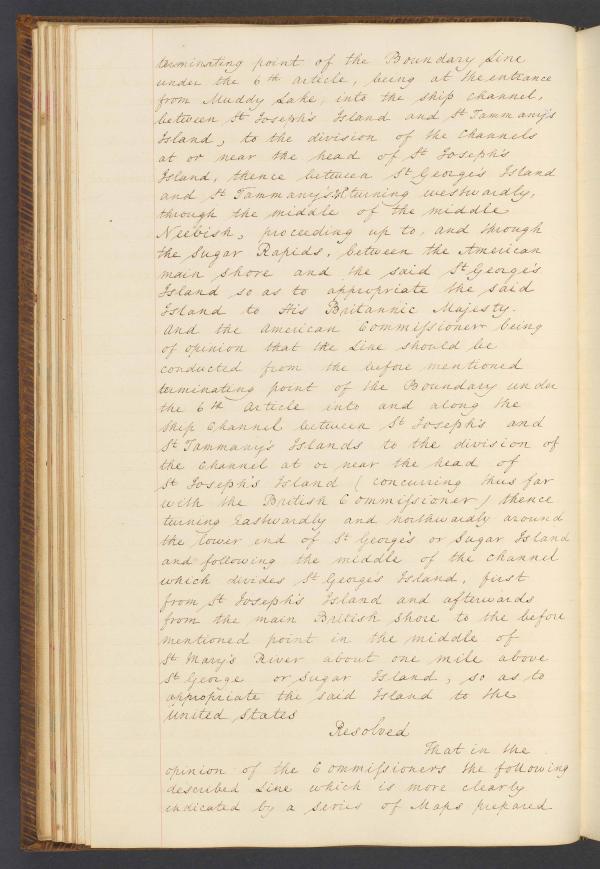 terminating point of the Boundary Line
under the 6th article, being at the entrance
from Muddy Lake, into the ship channel,
between St Joseph's Island and St Tammany's
Island, to the division of the Channels
at or near the head of St Joseph's
Island, thence between St George's Island
and St Tammany's turning westwardly,
through the middle of the middle
Neebish, proceeding up to, and through
the Sugar Rapids, between the American
main shore and the said St George's
Island so as to appropriate the said
Island to His Britannic Majesty.
And the American Commissioner being
of opinion that the Line should be
conducted from the before mentioned
terminating point of the Boundary under
the 6th Article into and along the
Ship Channel between St Joseph's and
St Tammany's Islands to the division of
the Channel at or near the head of
St Joseph's Island (concurring thus far
with the British Commissioner) thence
turning Eastwardly and northwardly around
the lower end of St George's or Sugar Island
and following the middle of the channel
which divides St George's Island, first
from St Joseph's Island and afterwards
from the main British shore to the before
mentioned point in the middle of
St Mary's River about one mile above
St George or Sugar Island, so as to
appropriate the said Island to the
United States
Resolved
That in the
opinion of the Commissioners the following
described Line which is more clearly
indicated by a series of Maps prepared